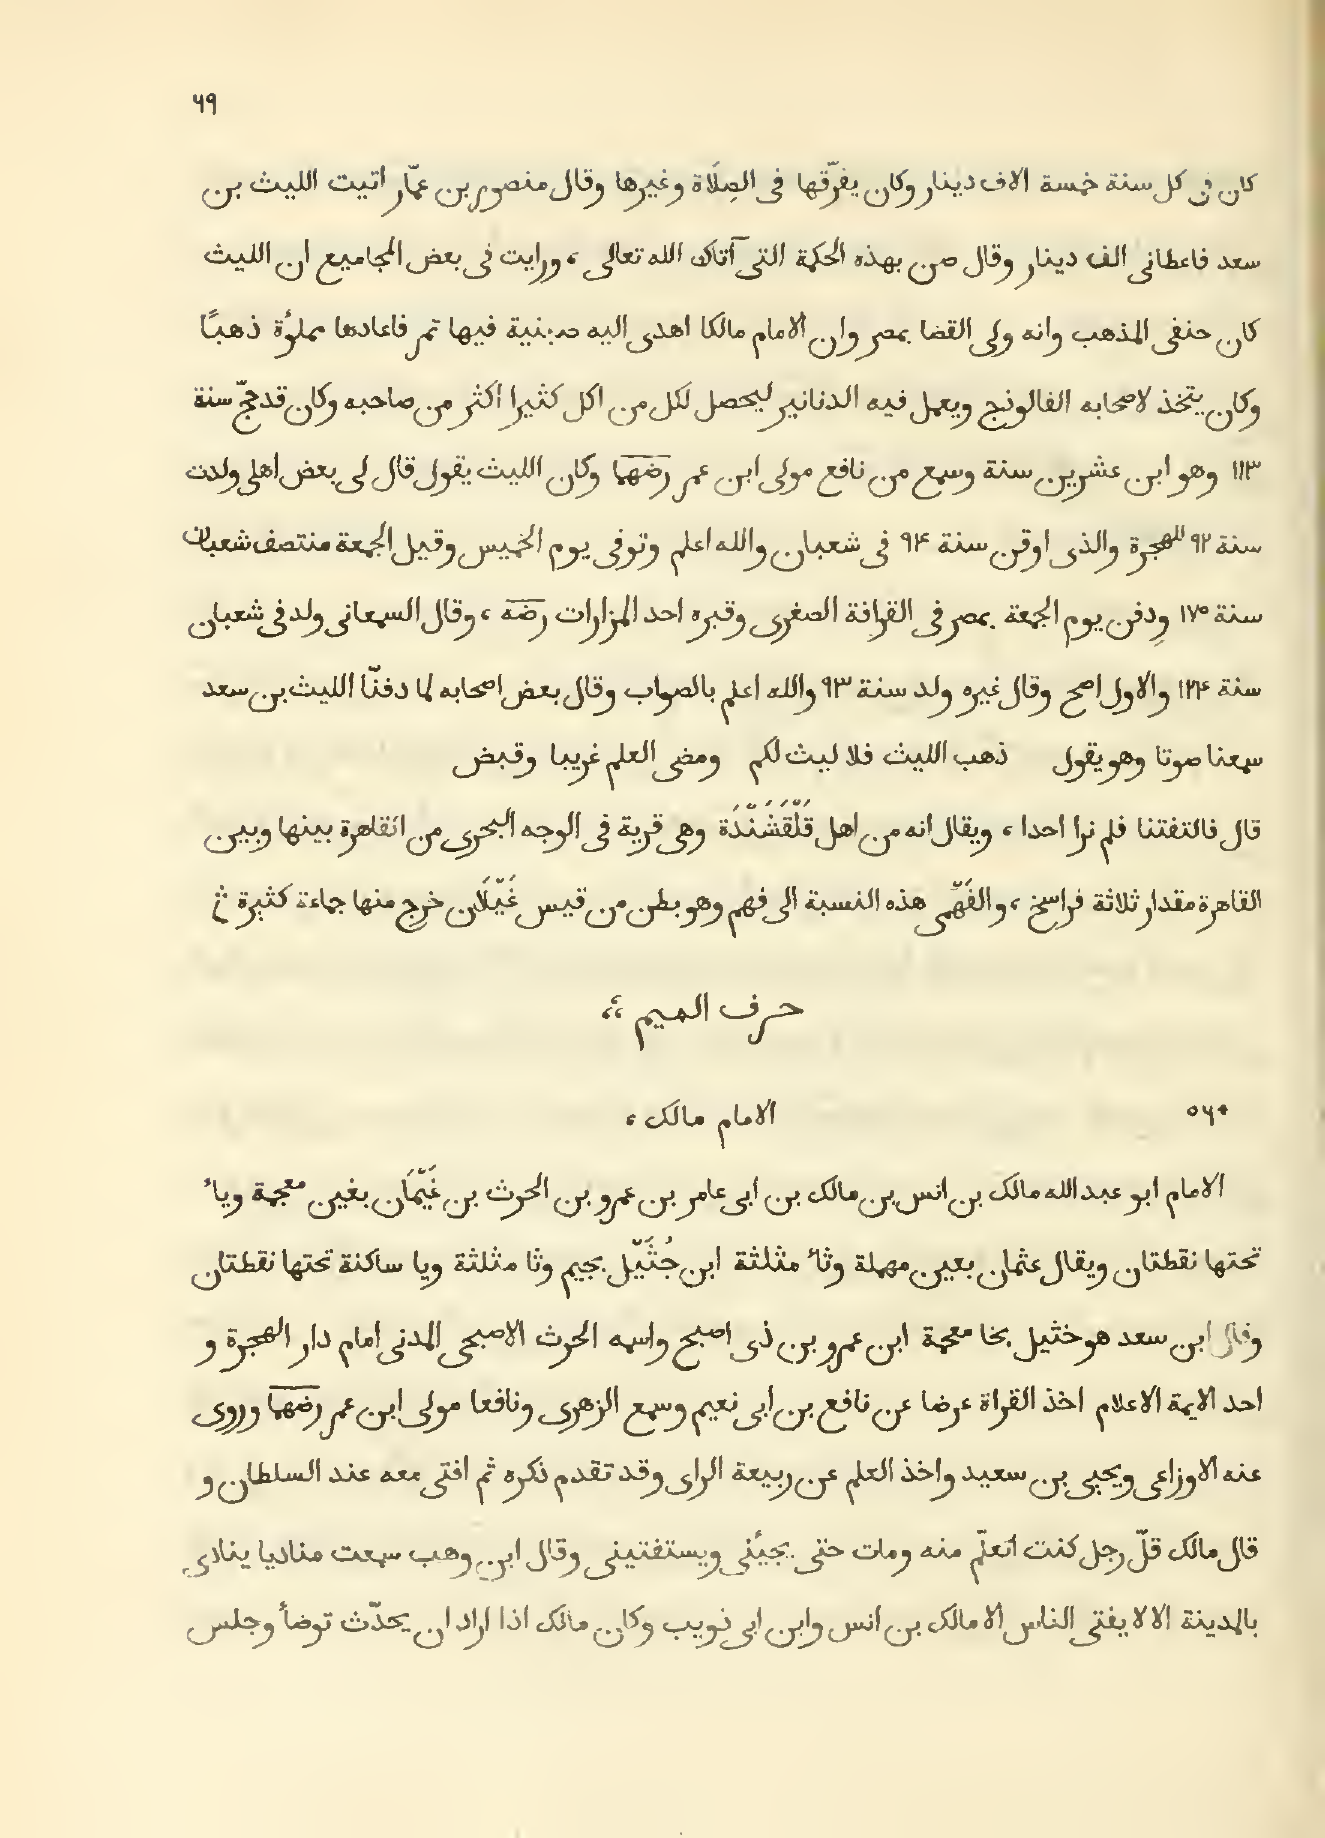 ٦٩
كان فى كل سنة خمسة الاف دينار وكان يفرّقها فى الصِلَاة وغيرها وقال منصور بن عمّار اتيت الليث بن
سعد فاعطانى الف دينار وقال صن بهذه الحكمة التى آتاك الله تعالى ، ورايت فى بعض المجاميع ان الليث
كان حنفى المذهب وانه ولى القضا بمصر وان الامام مالكا اهدى اليه صينية فيها تمر فاعادها مملوّة ذهبًا
وكان يتخذ لاصحابه الفالوذج ويعمل فيه الدنانير ليحصل لكل من اكل كثيرا اكثر من صاحبه وكان قد حجّ سنة
١١٣ وهو ابن عشرين سنة وسمع من نافع مولى ابن عمر رضهما وكان الليث يقول قال لى بعض اهلى ولدت
سنة ٩٢ للهجرة والذى اوقن سنة ٩۴ فى شعبان والله اعلم وتوفى يوم الخميس وقيل الجمعة منتصف شعبان
سنة ١٧٥ ودفن يوم الجمعة بمصر فى القرافة الصغرى وقبره احد المزارات رضه ، وقال السمعانى ولد فى شعبان
سنة ١٢۴ والاول اصح وقال غيره ولد سنة ٩٣ والله اعلم بالصواب وقال بعض اصحابه لما دفنّا الليث بن سعد
سمعنا صوتا وهو يقول ذهب الليث فلا ليث لكم ومضى العلم غريبا وقبض
قال فالتفتنا فلم نرا احدا ، ويقال انه من اهل قَلْقَشَنْدَة وهى قرية فى الوجه البحرى من القاهرة بينها وبين
القاهرة مقدار ثلاثة فراسخ ، والفَهْمى هذه النسبة الى فهم وهو بطن من قيس غَيْلَان خرج منها جماعة كثيرة
حرف الميم ،،
٥٦٠ الامام مالك ،
الامام ابو عبد الله مالك بن انس بن مالك بن ابى عامر بن عمرو بن الحرث بن غَيْمَان بغين معجمة وياء
تحتها نقطتان ويقال عثمان بعين مهملة وثاء مثلثة ابن جُثَيْل بجيم وثا مثلثة ويا ساكنة تحتها نقطتان
وقال ابن سعد هو خثيل بخا معجمة ابن عمرو بن ذى اصبح واسمه الحرث الاصبحى المدنى امام دار الهجرة و
احد الايمة الاعلام اخذ القراة عرضا عن نافع بن ابى نعيم وسمع الزهرى ونافعا مولى ابن عمر رضهما وروى
عنه الاوزاعى ويحيى بن سعيد واخذ العلم عن ربيعة الراى وقد تقدم ذكره ثم افتى معه عند السلطان و
قال مالك قلّ رجل كنت اتعلّم منه ومات حتى يجيئنى ويستفتينى وقال ابن وهب سمعت مناديا ينادى
بالمدينة الا لا يفتى الناس الا مالك بن انس وابن ابى ذويب وكان مالك اذا اراد ان يحدّث توضأ وجلس